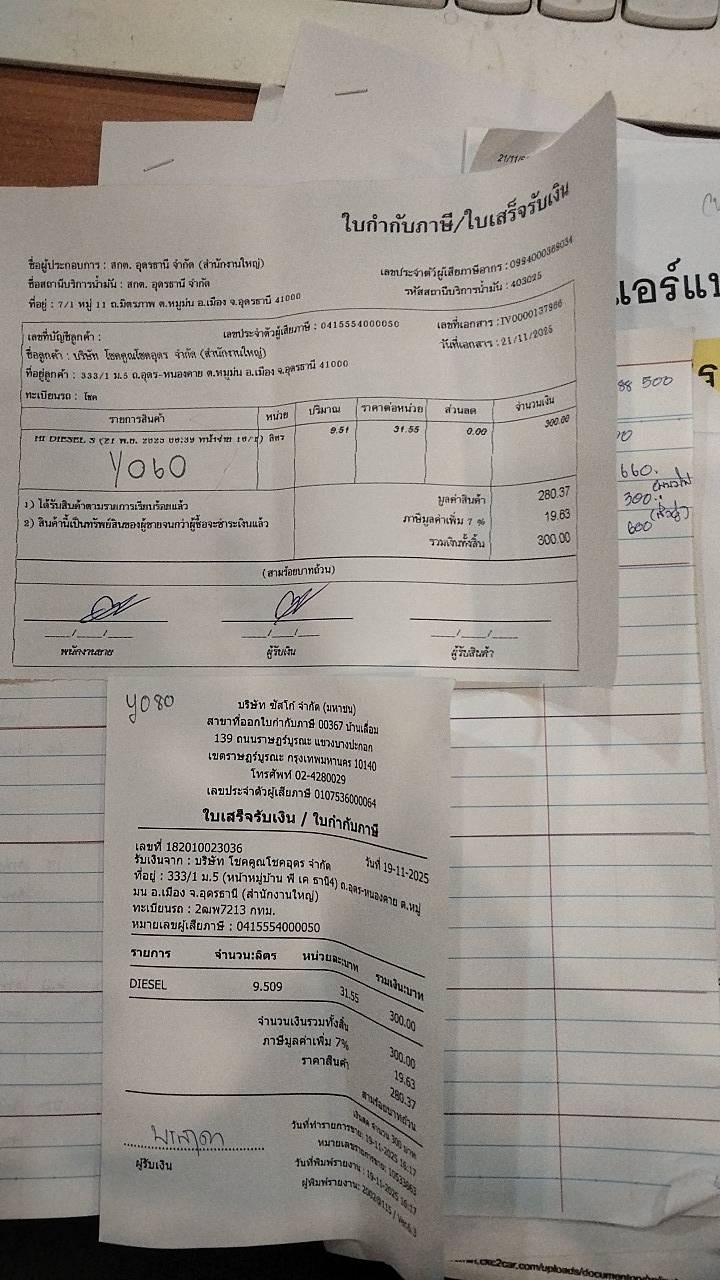 21/11/
ใบกำกับภาษี/ใบเสร็จรับเงิน
ชื่อผู้ประกอบการ : สกต. อุดรธานี จำกัด (สำนักงานใหญ่)
เลขประจำตัวผู้เสียภาษีอากร : 0994000369034
ชื่อสถานีบริการน้ำมัน : สกต. อุดรธานี จำกัด
รหัสสถานีบริการน้ำมัน : 403025
ที่อยู่ : 7/1 หมู่ 11 ถ.มิตรภาพ ต.หมูม่น อ.เมือง จ.อุดรธานี 41000
เลขที่บัญชีลูกค้า :
เลขประจำตัวผู้เสียภาษี : 0415554000050
เลขที่เอกสาร : IV0000137986
ชื่อลูกค้า : บริษัท โชคคูณโชคอุดร จำกัด (สำนักงานใหญ่)
วันที่เอกสาร : 21/11/2025
ที่อยู่ลูกค้า : 333/1 ม.5 ถ.อุดร-หนองคาย ต.หมูม่น อ.เมือง จ.อุดรธานี 41000
ทะเบียนรถ : โชค
รายการสินค้า หน่วย ปริมาณ ราคาต่อหน่วย ส่วนลด จำนวนเงิน
HI DIESEL S (21 พ.ย. 2025 ลิตร 9.51 31.55 0.00 300.00
YO60
1) ได้รับสินค้าตามรายการเรียบร้อยแล้ว
มูลค่าสินค้า 280.37
2) สินค้านี้เป็นทรัพย์สินของผู้ขายจนกว่าผู้ซื้อจะชำระเงินแล้ว
ภาษีมูลค่าเพิ่ม 7 % 19.63
รวมเงินทั้งสิ้น 300.00
(สามร้อยบาทถ้วน)
___/___/___ ___/___/___ ___/___/___
พนักงานขาย ผู้รับเงิน ผู้รับสินค้า
แอร์แ
88 500
660.
300.
600
YO80
บริษัท ซัสโก้ จำกัด (มหาชน)
สาขาที่ออกใบกำกับภาษี 00367 บ้านเลื่อม
139 ถนนราษฎร์บูรณะ แขวงบางปะกอก
เขตราษฎร์บูรณะ กรุงเทพมหานคร 10140
โทรศัพท์ 02-4280029
เลขประจำตัวผู้เสียภาษี 0107536000064
ใบเสร็จรับเงิน / ใบกำกับภาษี
เลขที่ 182010023036
วันที่ 19-11-2025
รับเงินจาก : บริษัท โชคคูณโชคอุดร จำกัด
ที่อยู่ : 333/1 ม.5 (หน้าหมู่บ้าน พี เค ธานี4) ถ.อุดร-หนองคาย ต.หมู
มน อ.เมือง จ.อุดรธานี (สำนักงานใหญ่)
ทะเบียนรถ : 2ฒพ7213 กทม.
หมายเลขผู้เสียภาษี : 0415554000050
รายการ จำนวน:ลิตร หน่วยละ:บาท รวมเงิน:บาท
DIESEL 9.509 31.55 300.00
จำนวนเงินรวมทั้งสิ้น 300.00
ภาษีมูลค่าเพิ่ม 7% 19.63
ราคาสินค้า 280.37
สามร้อยบาทถ้วน
เงินสด จำนวน 300 บาท
วันที่ทำรายการขาย: 19-11-2025 16:17
หมายเลขรายการขาย: 10533663
วันที่พิมพ์รายงาน : 19-11-2025 16:17
ผู้รับเงิน